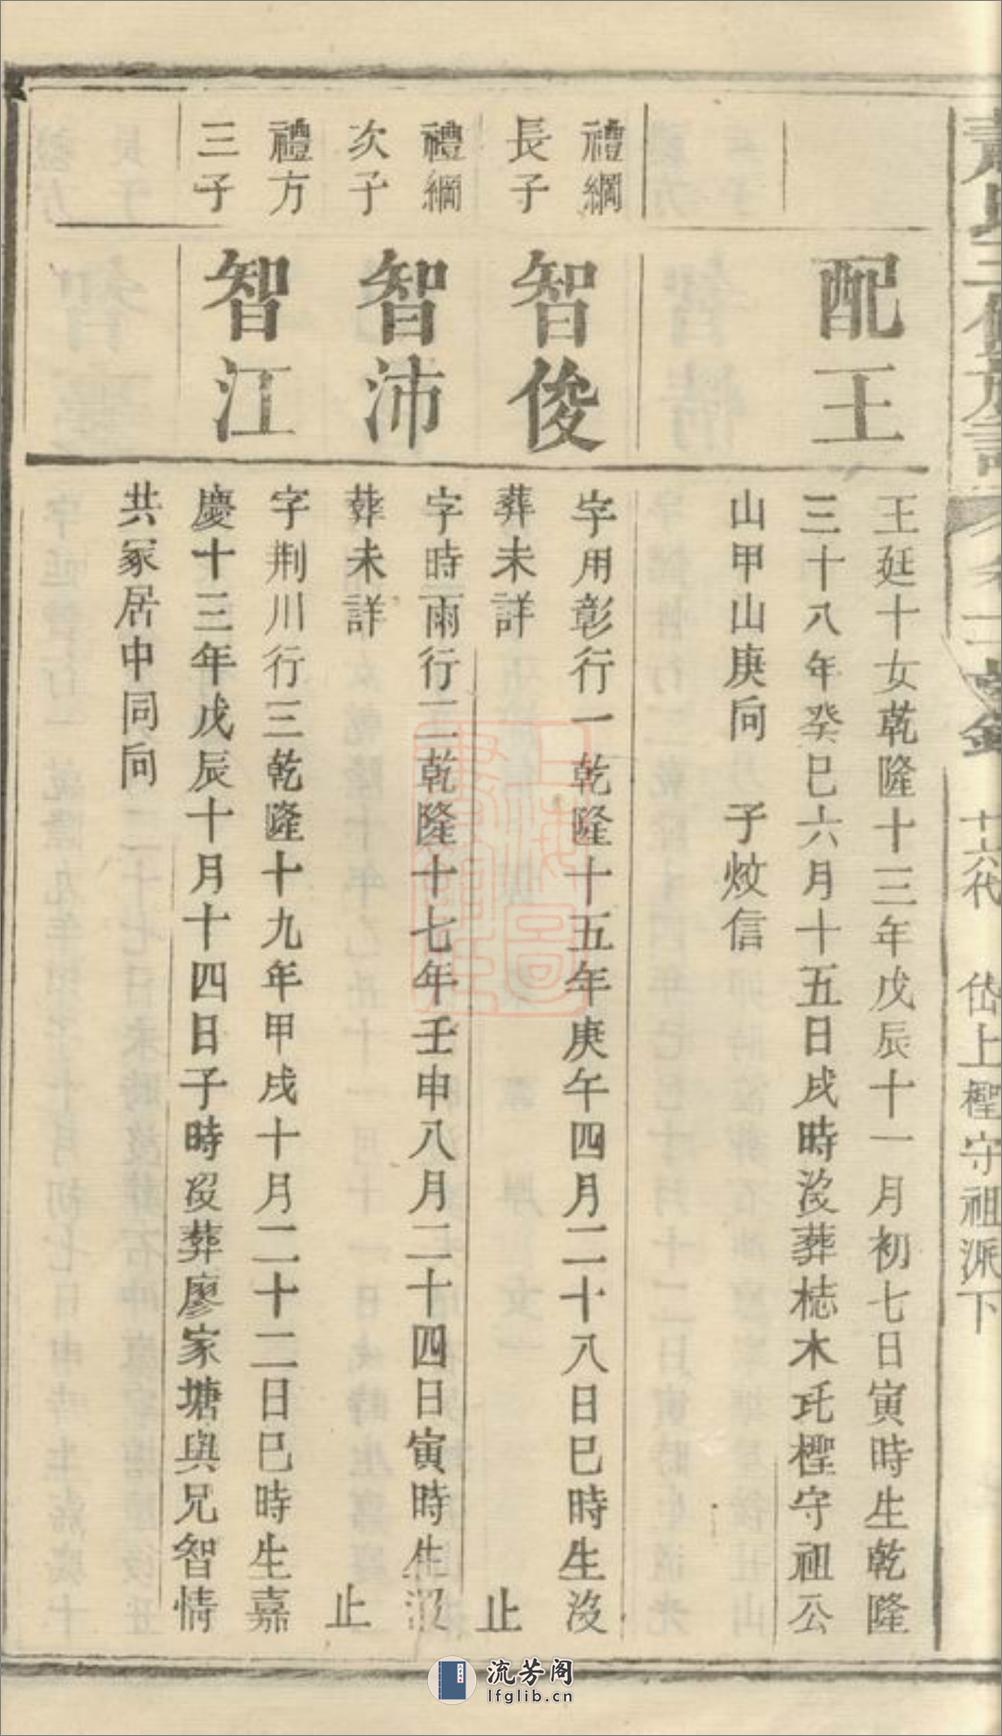 十六代 岱上檉守祖派下
配王
王廷十女乾隆十三年戊辰十一月初七日寅時生乾隆
三十八年癸巳六月十五日戌時沒葬梽木圫檉守祖公
山甲山庚向 子炆信
禮綱
長子
智俊
字用彰行一乾隆十五年庚午四月二十八日巳時生沒
葬未詳 止
禮綱
次子
智沛
字時雨行二乾隆十七年壬申八月二十四日寅時生沒
葬未詳 止
禮方
三子
智江
字荆川行三乾隆十九年甲戌十月二十二日巳時生嘉
慶十三年戊辰十月十四日子時沒葬廖家塘與兄智情
共冢居中同向
流芳阁
lfglib.cn